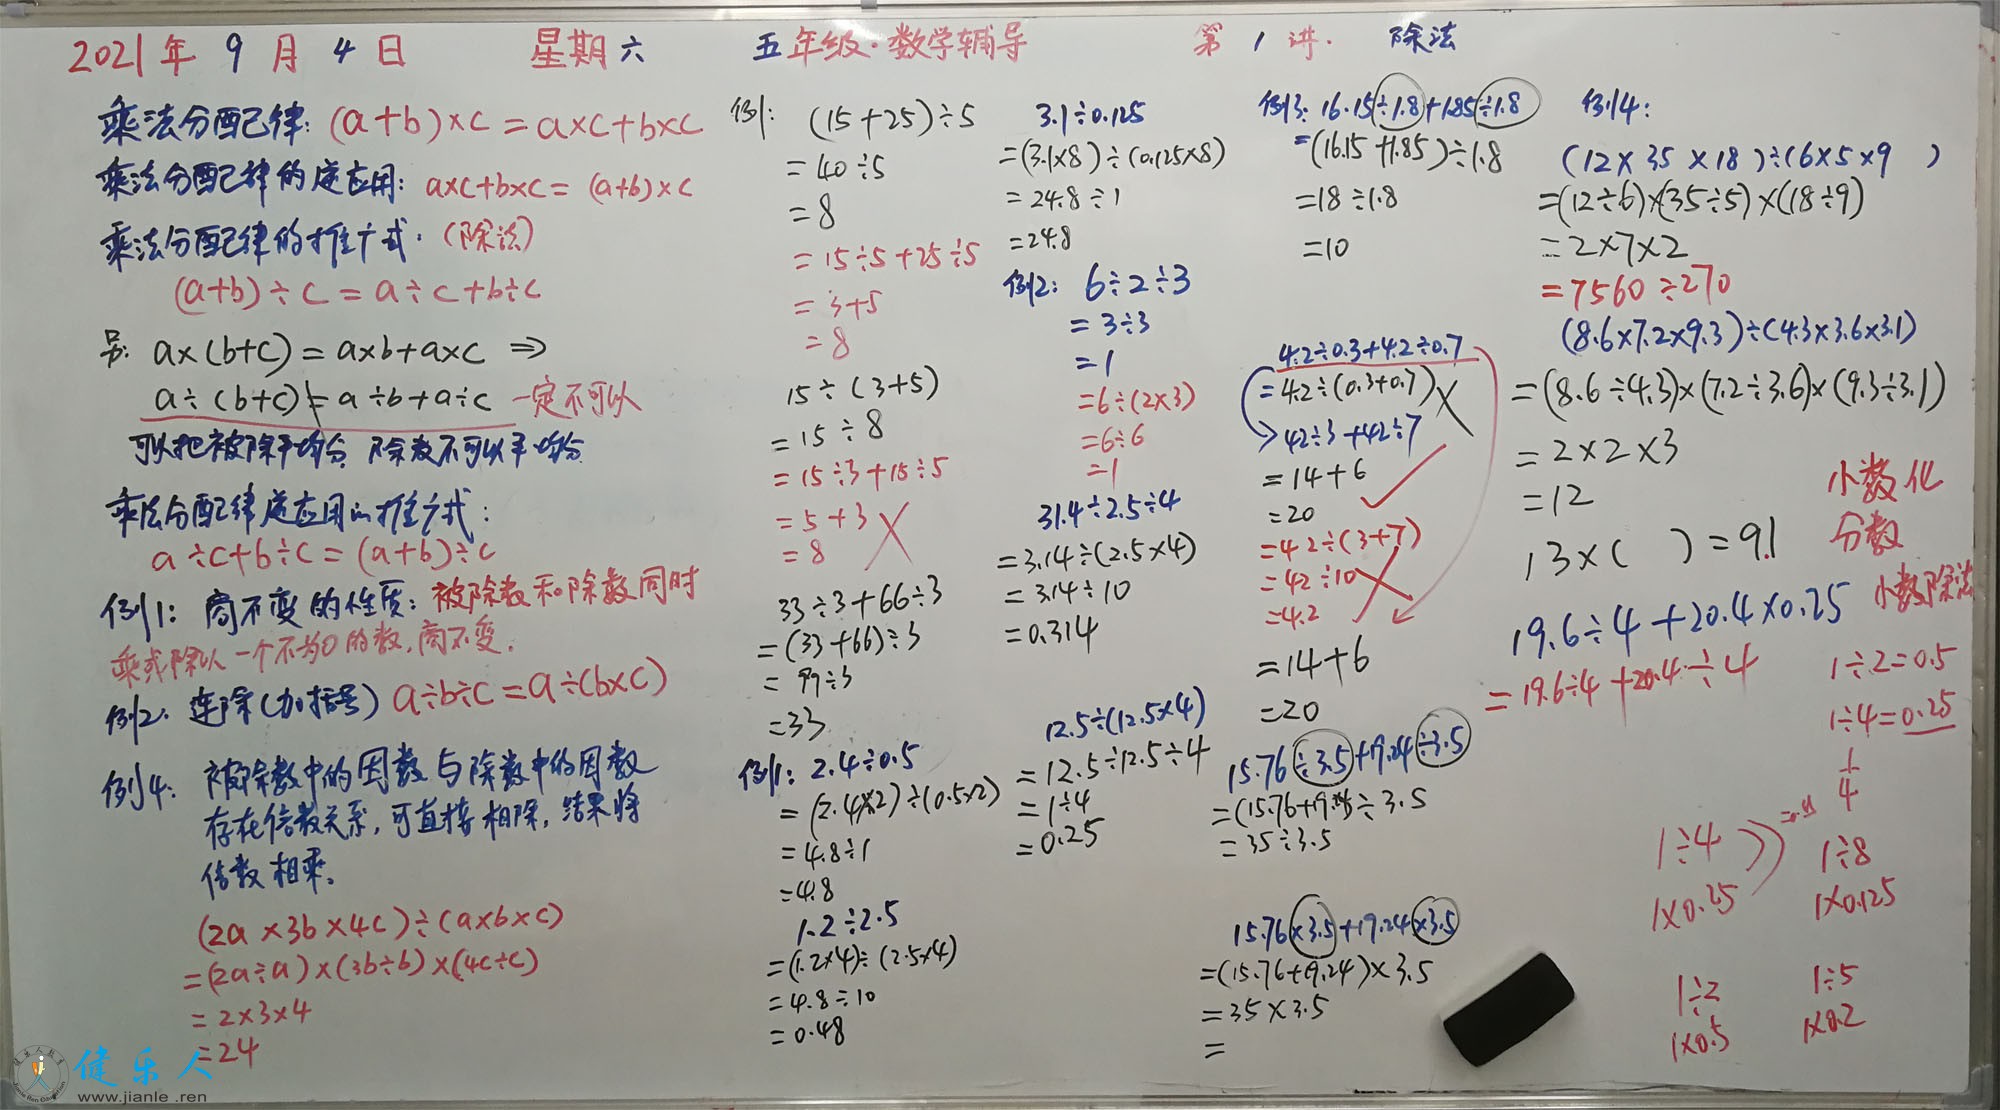 2021年 9 月 4 日 星期六 五年级·数学辅导 第 1 讲· 除法
乘法分配律: (a+b)×c=a×c+b×c
乘法分配律的逆应用: a×c+b×c=(a+b)×c
乘法分配律的推广式: (除法)
(a+b)÷c=a÷c+b÷c
另: a×(b+c)=a×b+a×c ⇒
a÷(b+c)≠a÷b+a÷c 一定不可以
可以把被除平均分 除数不可以平均分
乘法分配律逆应用的推广式:
a÷c+b÷c=(a+b)÷c
例1: 商不变的性质: 被除数和除数同时
乘或除以一个不为0的数,商不变.
例2. 连除(加括号) a÷b÷c=a÷(b×c)
例4: 被除数中的因数与除数中的因数
存在倍数关系,可直接相除,结果将
倍数相乘。
(2a×3b×4c)÷(a×b×c)
=(2a÷a)×(3b÷b)×(4c÷c)
=2×3×4
=24
例1: (15+25)÷5
=40÷5
=8
=15÷5+25÷5
=3+5
=8
15÷(3+5)
=15÷8
=15÷3+15÷5
=5+3
=8
33÷3+66÷3
=(33+66)÷3
=99÷3
=33
例1: 2.4÷0.5
=(2.4×2)÷(0.5×2)
=4.8÷1
=4.8
1.2÷2.5
=(1.2×4)÷(2.5×4)
=4.8÷10
=0.48
3.1÷0.125
=(3.1×8)÷(0.125×8)
=24.8÷1
=24.8
例2: 6÷2÷3
=3÷3
=1
=6÷(2×3)
=6÷6
=1
31.4÷2.5÷4
=3.14÷(2.5×4)
=3.14÷10
=0.314
12.5÷(12.5×4)
=12.5÷12.5÷4
=1÷4
=0.25
例3: 16.15÷1.8+1.85÷1.8
=(16.15+1.85)÷1.8
=18÷1.8
=10
4.2÷0.3+4.2÷0.7
=4.2÷(0.3+0.7)
42÷3+42÷7
=14+6
=20
=42÷(3+7)
=42÷10
=4.2
=14+6
=20
15.76÷3.5+19.24÷3.5
=(15.76+19.24)÷3.5
=35÷3.5
15.76×3.5+19.24×3.5
=(15.76+19.24)×3.5
=35×3.5
=
例4:
(12×35×18)÷(6×5×9 )
=(12÷6)×(35÷5)×(18÷9)
=2×7×2
=7560÷270
(8.6×7.2×9.3)÷(4.3×3.6×3.1)
=(8.6÷4.3)×(7.2÷3.6)×(9.3÷3.1)
=2×2×3
=12
13×( )=9.1
19.6÷4+20.4×0.25
=19.6÷4+20.4÷4
小数化
分数
小数除法
1÷2=0.5
1÷4=0.25
1/4
1÷4
1×0.25
1÷8
1×0.125
1÷2
1×0.5
1÷5
1×0.2
健乐人
www.jianle.ren